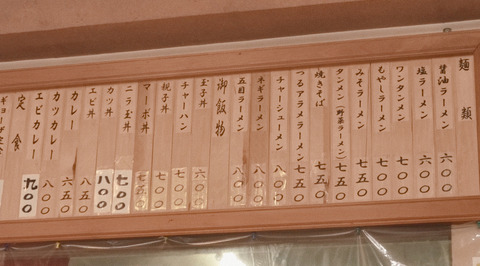 麺類
醤油ラーメン 六〇〇
塩ラーメン 六〇〇
ワンタンメン 七〇〇
もやしラーメン 七〇〇
みそラーメン 七五〇
タンメン(野菜ラーメン) 七五〇
焼きそば 七五〇
つるアラメラーメン 七五〇
チャーシューメン 八〇〇
米ギラーメン 八〇〇
五目ラーメン 八〇〇
御飯物
玉子丼 六〇〇
チャーハン 七〇〇
親子丼 七〇〇
マーボ丼 七五〇
ニラ玉丼 七〇〇
カツ丼 八〇〇
エビ丼 八五〇
カレー 六五〇
カツカレー 八〇〇
エビカレー 九〇〇
定食
ギョーザ定食